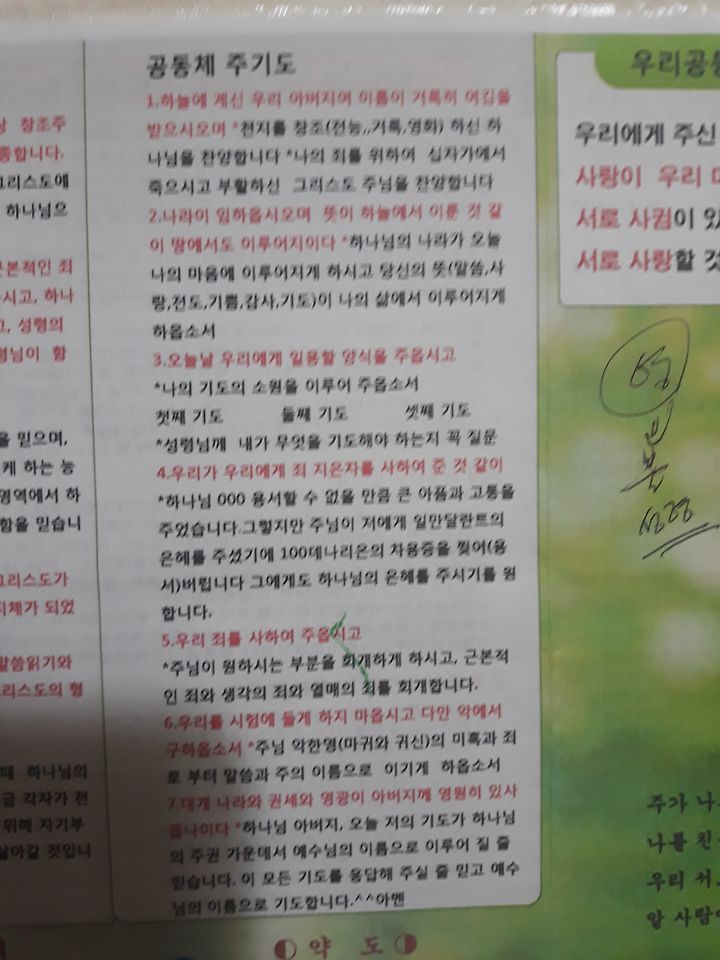 공동체 주기도
1.하늘에 계신 우리 아버지여 이름이 거룩히 여김을
받으시오며 *천지를 창조(전능,,거룩,영화) 하신 하
나님을 찬양합니다 *나의 죄를 위하여 십자가에서
죽으시고 부활하신 그리스도 주님을 찬양합니다
2.나라이 임하옵시오며 뜻이 하늘에서 이룬 것 같
이 땅에서도 이루어지이다 *하나님의 나라가 오늘
나의 마음에 이루어지게 하시고 당신의 뜻(말씀,사
랑,전도,기쁨,감사,기도)이 나의 삶에서 이루어지게
하옵소서
3.오늘날 우리에게 일용할 양식을 주옵시고
*나의 기도의 소원을 이루어 주옵소서
첫째 기도 둘째 기도 셋째 기도
*성령님께 내가 무엇을 기도해야 하는지 꼭 질문
4.우리가 우리에게 죄 지은자를 사하여 준 것 같이
*하나님 000 용서할 수 없을 만큼 큰 아픔과 고통을
주었습니다.그렇지만 주님이 저에게 일만달란트의
은혜를 주셨기에 100데나리온의 차용증을 찢어(용
서)버립니다 그에게도 하나님의 은혜를 주시기를 원
합니다.
5.우리 죄를 사하여 주옵시고
*주님이 원하시는 부분을 회개하게 하시고, 근본적
인 죄와 생각의 죄와 열매의 죄를 회개합니다.
6.우리를 시험에 들게 하지 마옵시고 다만 악에서
구하옵소서 *주님 악한영(마귀와 귀신)의 미혹과 죄
로 부터 말씀과 주의 이름으로 이기게 하옵소서
7.대개 나라와 권세와 영광이 아버지께 영원히 있사
옵나이다 *하나님 아버지, 오늘 저의 기도가 하나님
의 주권 가운데서 예수님의 이름으로 이루어 질 줄
믿습니다. 이 모든 기도를 응답해 주실 줄 믿고 예수
님의 이름으로 기도합니다.^^아멘
약 도
창조주
종합니다.
그리스도에
하나님으
근본적인 죄
시고, 하나
고, 성령의
령님이 함
을 믿으며,
케 하는 능
영역에서 하
함을 믿습니
그리스도가
지체가 되었
말씀읽기와
리스도의 형
때 하나님의
금 각자가 천
위해 자기부
살아갈 것입니
우리공동
우리에게 주신
사랑이 우리
서로 사귐이 있
서로 사랑할 것
성령
주가 나
나를 친
우리 서
알 사람